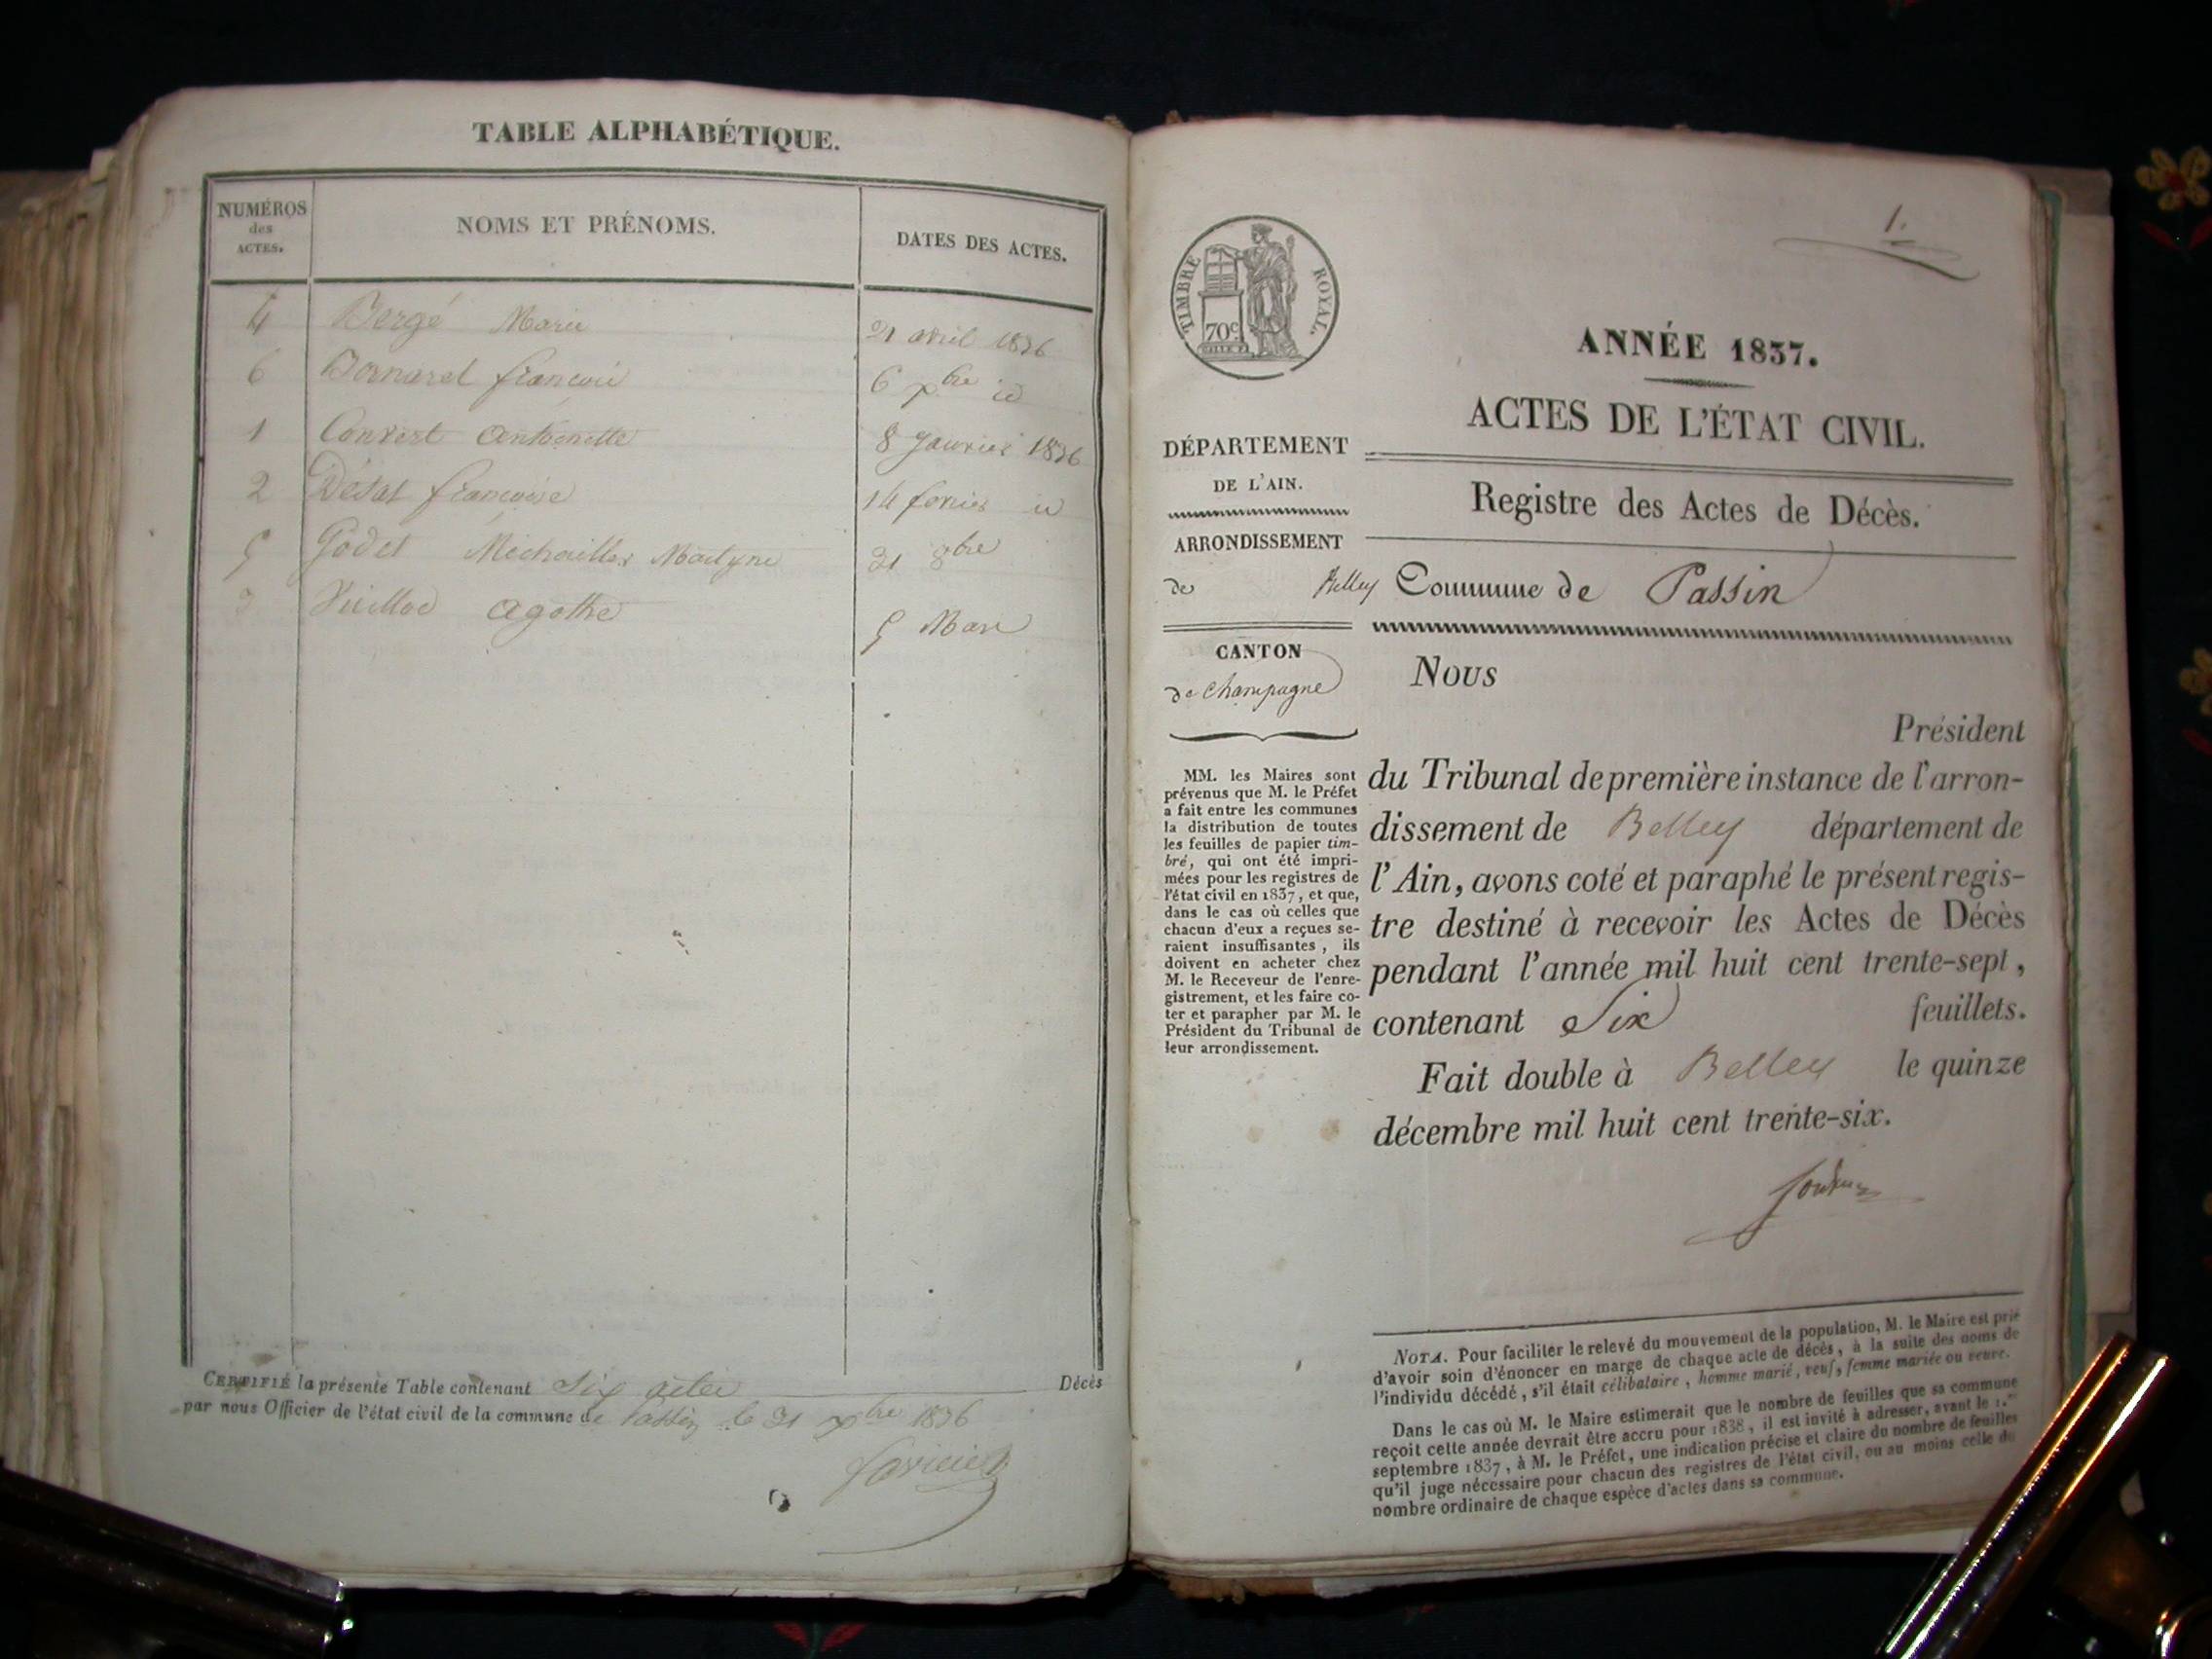 TABLE ALPHABÉTIQUE.
NUMÉROS
des
ACTES.
NOMS ET PRÉNOMS.
DATES DES ACTES.
4 Bergé Marie 21 avril 1836
6 Bornarel françois 6 xbre id
1 Convert antoinette 8 janvier 1836
2 françoise 14 id
5 Godet 31 8bre
3 agathe 5 Mars
CERTIFIÉ la présente Table contenant Six actes Décès
par nous Officier de l'état civil de la commune de Passin le 31 xbre 1836
1.
TIMBRE ROYAL.
70c
ANNÉE 1837.
ACTES DE L'ÉTAT CIVIL.
Registre des Actes de Décès.
Commune de Passin
DÉPARTEMENT
DE L'AIN.
ARRONDISSEMENT
de Belley
CANTON
de Champagne
MM. les Maires sont
prévenus que M. le Préfet
a fait entre les communes
la distribution de toutes
les feuilles de papier tim-
bré, qui ont été impri-
mées pour les registres de
l'état civil en 1837, et que,
dans le cas où celles que
chacun d'eux a reçues se-
raient insuffisantes, ils
doivent en acheter chez
M. le Receveur de l'enre-
gistrement, et les faire co-
ter et parapher par M. le
Président du Tribunal de
leur arrondissement.
Nous
Président
du Tribunal de première instance de l'arron-
dissement de Belley département de
l'Ain, avons coté et paraphé le présent regis-
tre destiné à recevoir les Actes de Décès
pendant l'année mil huit cent trente-sept,
contenant Six feuillets.
Fait double à Belley le quinze
décembre mil huit cent trente-six.
NOTA. Pour faciliter le relevé du mouvement de la population, M. le Maire est prié
d'avoir soin d'énoncer en marge de chaque acte de décès, à la suite des noms de
l'individu décédé, s'il était célibataire, homme marié, veuf, femme mariée ou veuve.
Dans le cas où M. le Maire estimerait que le nombre de feuilles que sa commune
reçoit cette année devrait être accru pour 1838, il est invité à adresser, avant le 1.er
septembre 1837, à M. le Préfet, une indication précise et claire du nombre de feuilles
qu'il juge nécessaire pour chacun des registres de l'état civil, ou au moins celle du
nombre ordinaire de chaque espèce d'actes dans sa commune.